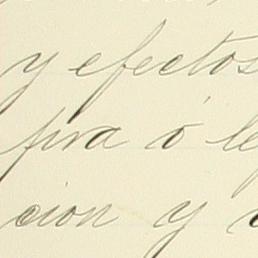 y efectos
fira ó le
cion y